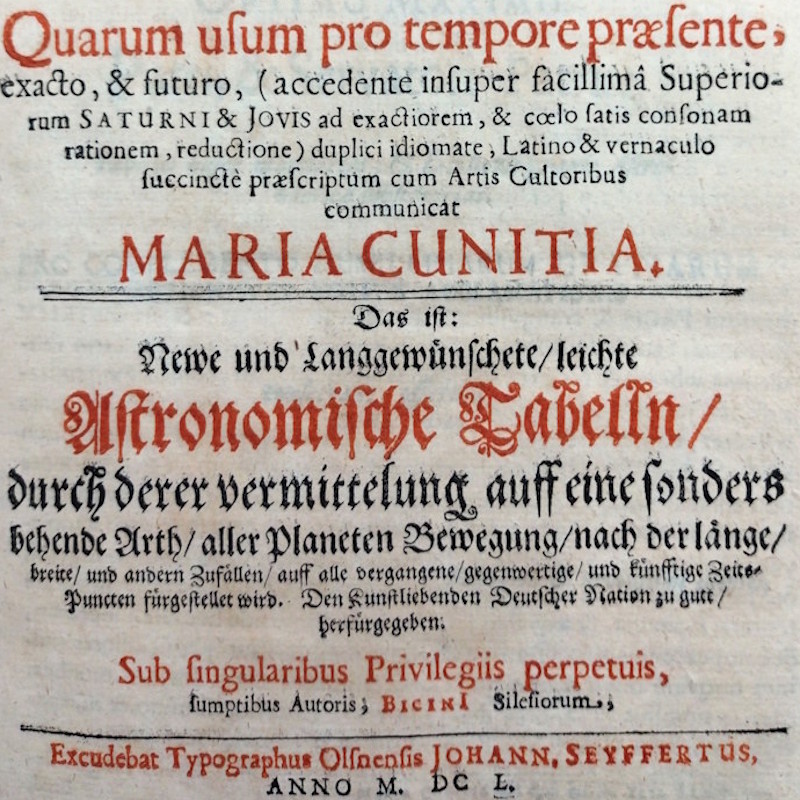 Quarum uſum pro tempore præſente,
exacto, & futuro, (accedente inſuper facillimâ Superio-
rum SATURNI & JOVIS ad exactiorem, & cœlo ſatis conſonam
rationem, reductione) duplici idiomate, Latino & vernaculo
ſuccinctè præſcriptum cum Artis Cultoribus
communicat
MARIA CUNITIA.
Das iſt:
Newe und Langgewünſchete/ leichte
Aſtronomiſche Tabelln/
durch derer vermittelung auff eine ſonders
behende Arth/ aller Planeten Bewegung/ nach der länge/
breite/ und andern Zufällen/ auff alle vergangene/ gegenwertige/ und künfftige Zeits-
Puncten fürgeſtellet wird. Den Kunſtliebenden Deutſcher Nation zu gutt/
herfürgegeben.
Sub ſingularibus Privilegiis perpetuis,
ſumptibus Autoris, BICINI Sileſiorum,
Excudebat Typographus Olſnenſis JOHANN. SEYFFERTUS,
ANNO M. DC L.